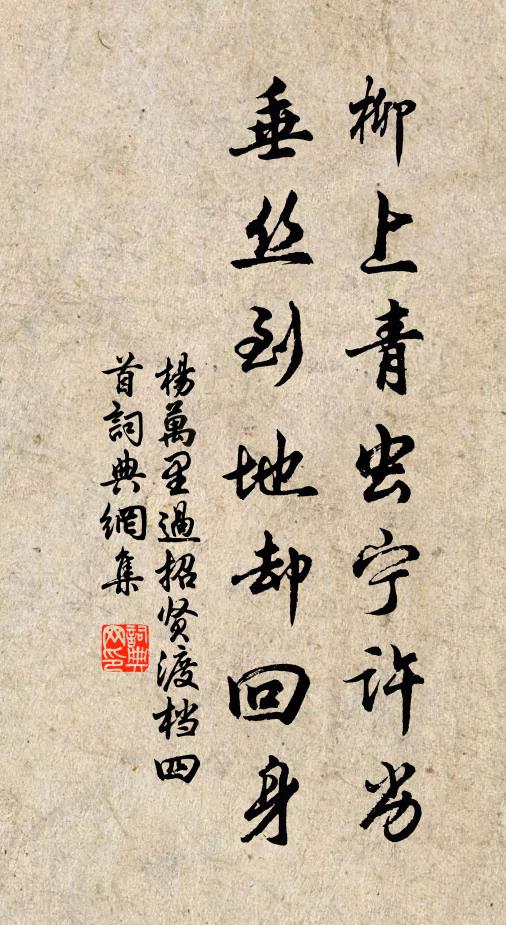 柳上青虫宁许劣
垂丝到地却回身
楊萬里過招贤渡档四
首詞典網集
詞典網印